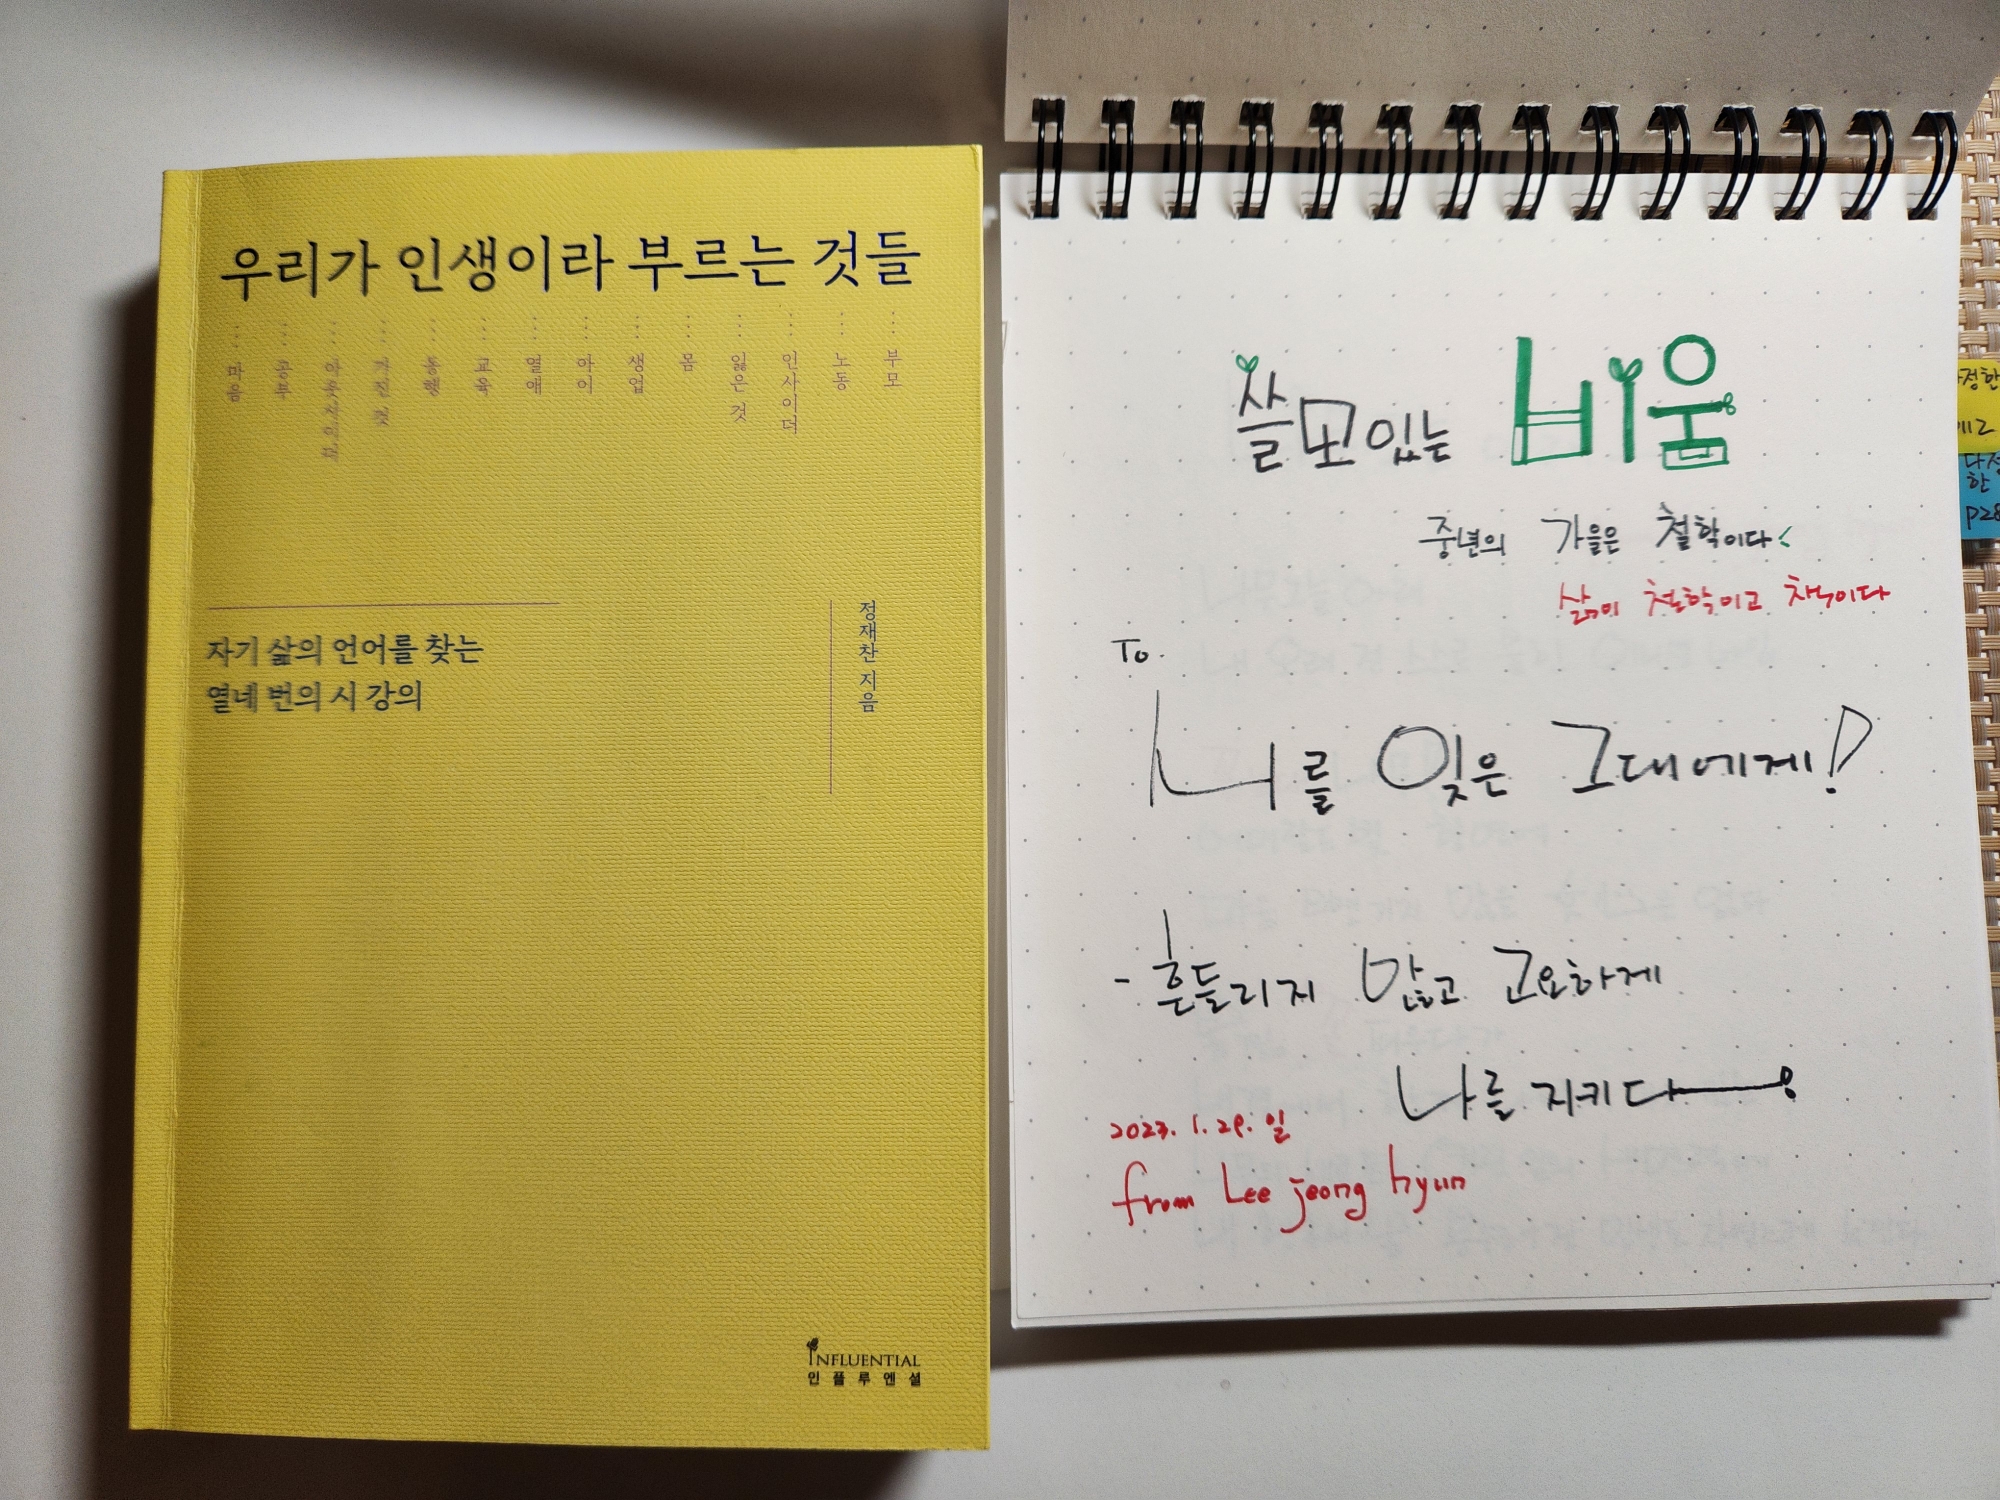 우리가 인생이라 부르는 것들
마음
공부
아주 사소한
가진 것
동행
교육
열애
아이
생업
몸
잃은 것
인사이더
노동
부모
자기 삶의 언어를 찾는
열네 번의 시 강의
정재찬 지음
INFLUENTIAL
인플루엔셜
쓸모있는 비움
중년의 가을은 철학이다
삶이 철학이고 책이다
To.
나를 잊은 그대에게!
- 흔들리지 않고 고요하게
나를 지키다
2023. 1. 29. 일
from Lee jeong hyun
다정한
p28